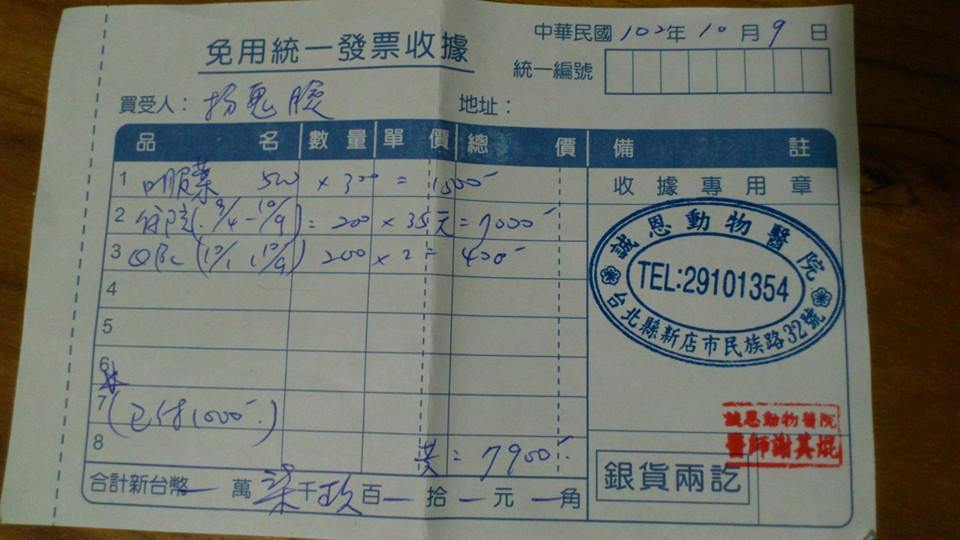 免用統一發票收據
中華民國 102 年 10 月 9 日
統一編號
買受人： 扮鬼臉 地址：
品名 數量 單價 總價 備註
收據專用章
1 口服藥 500 × 300 = 1500
2 住院(9/4-10/9) = 200 × 35天 = 7000
3 CBC (10/1, 10/9) 200 × 2 = 400
4
5
6
7 (已付1000.)
8 共 = 7900.
合計新台幣 一 萬 柒 千 玖 百 一 拾 一 元 一 角
銀貨兩訖
恩動物醫院
TEL:29101354
台北縣新店市民族路32號
恩動物醫院
醫師謝其焜